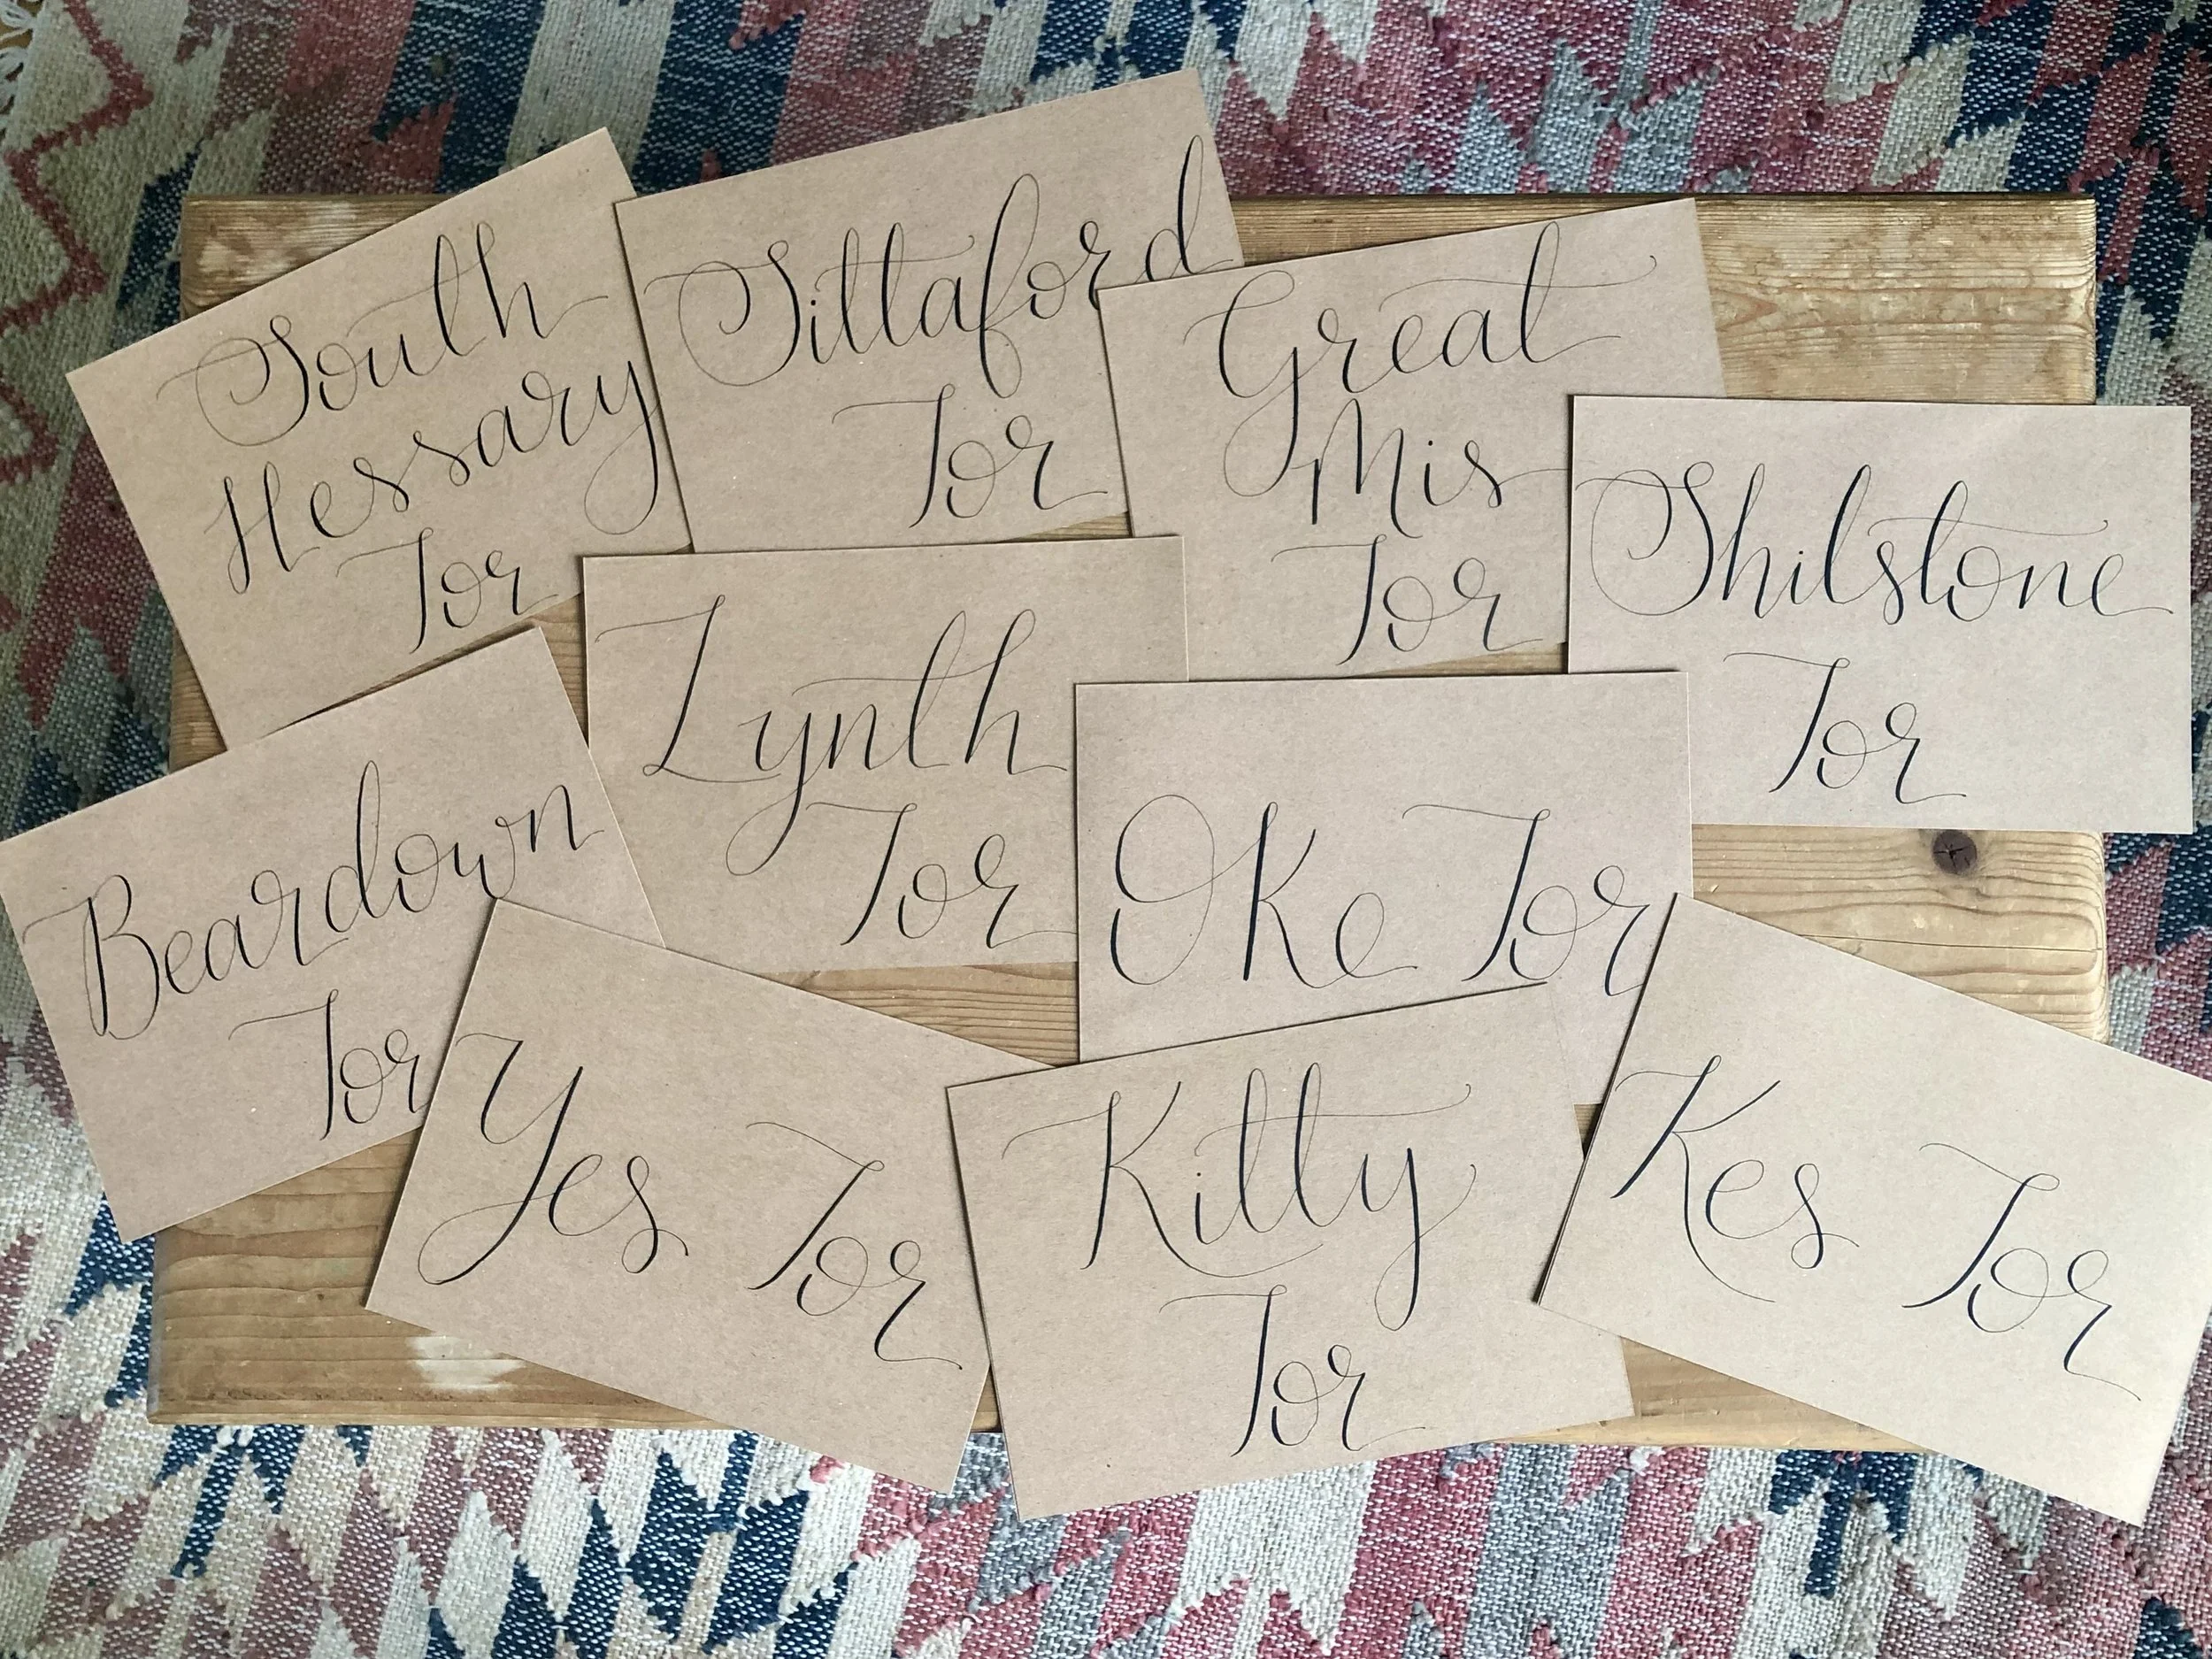 South
Hessary
Tor
Sittaford
Tor
Great
Mis
Tor
Shilstone
Tor
Lynth
Tor
Beardown
Tor
Oke Tor
Yes Tor
Kitty
Tor
Kes Tor